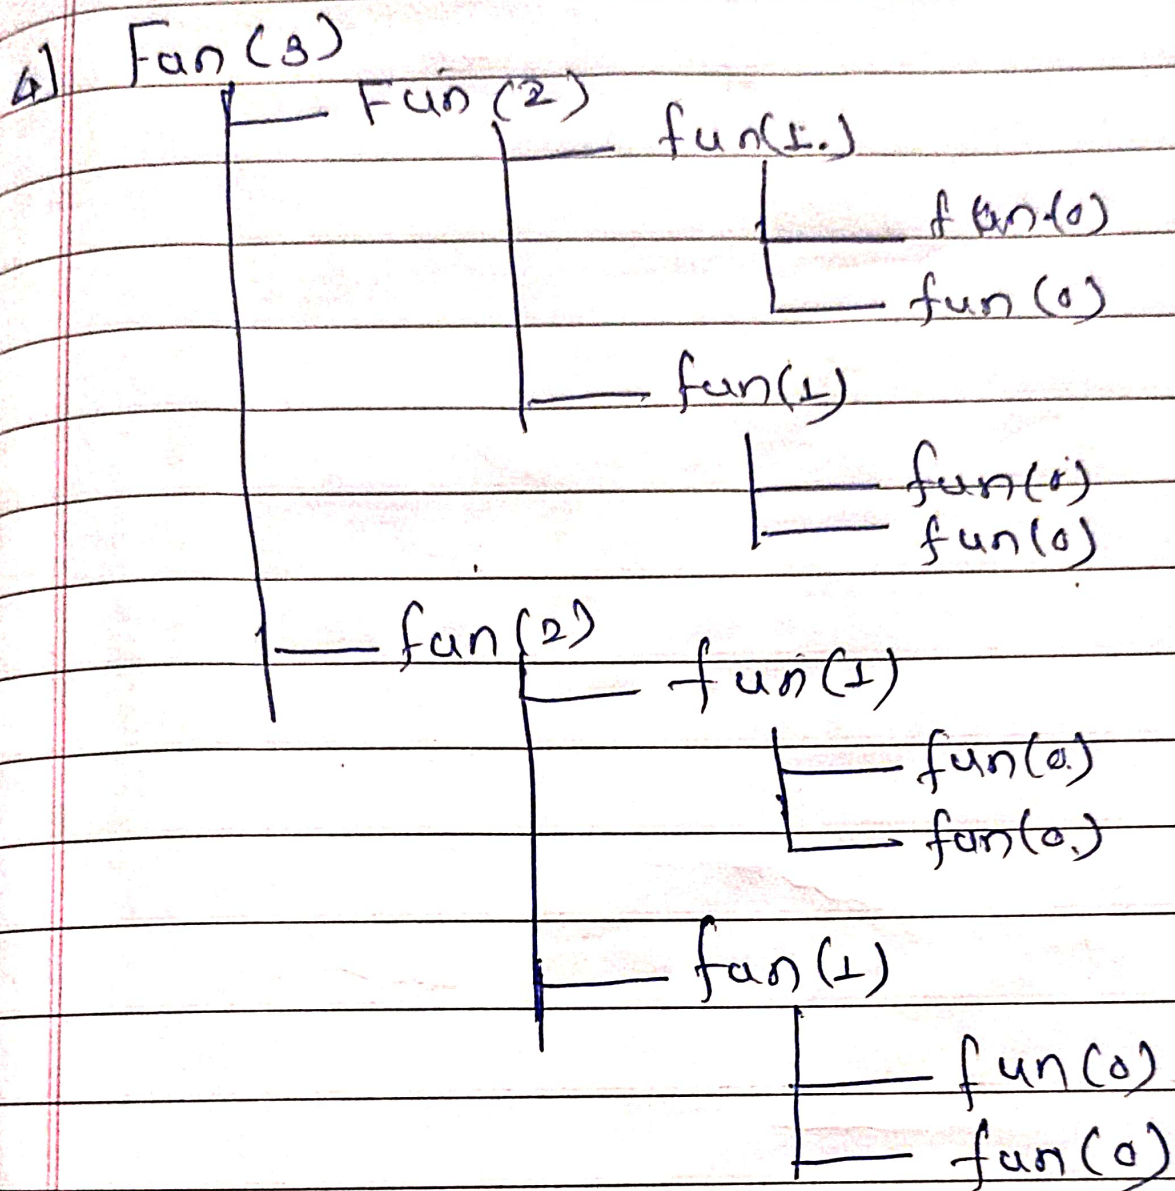 4] Fun (3)
Fun (2)
fun(1.)
fun(0)
fun (0)
fun(1)
fun(0)
fun(0)
fun (2)
fun (1)
fun(0)
fun(0)
fun (1)
fun (0)
fun (0)